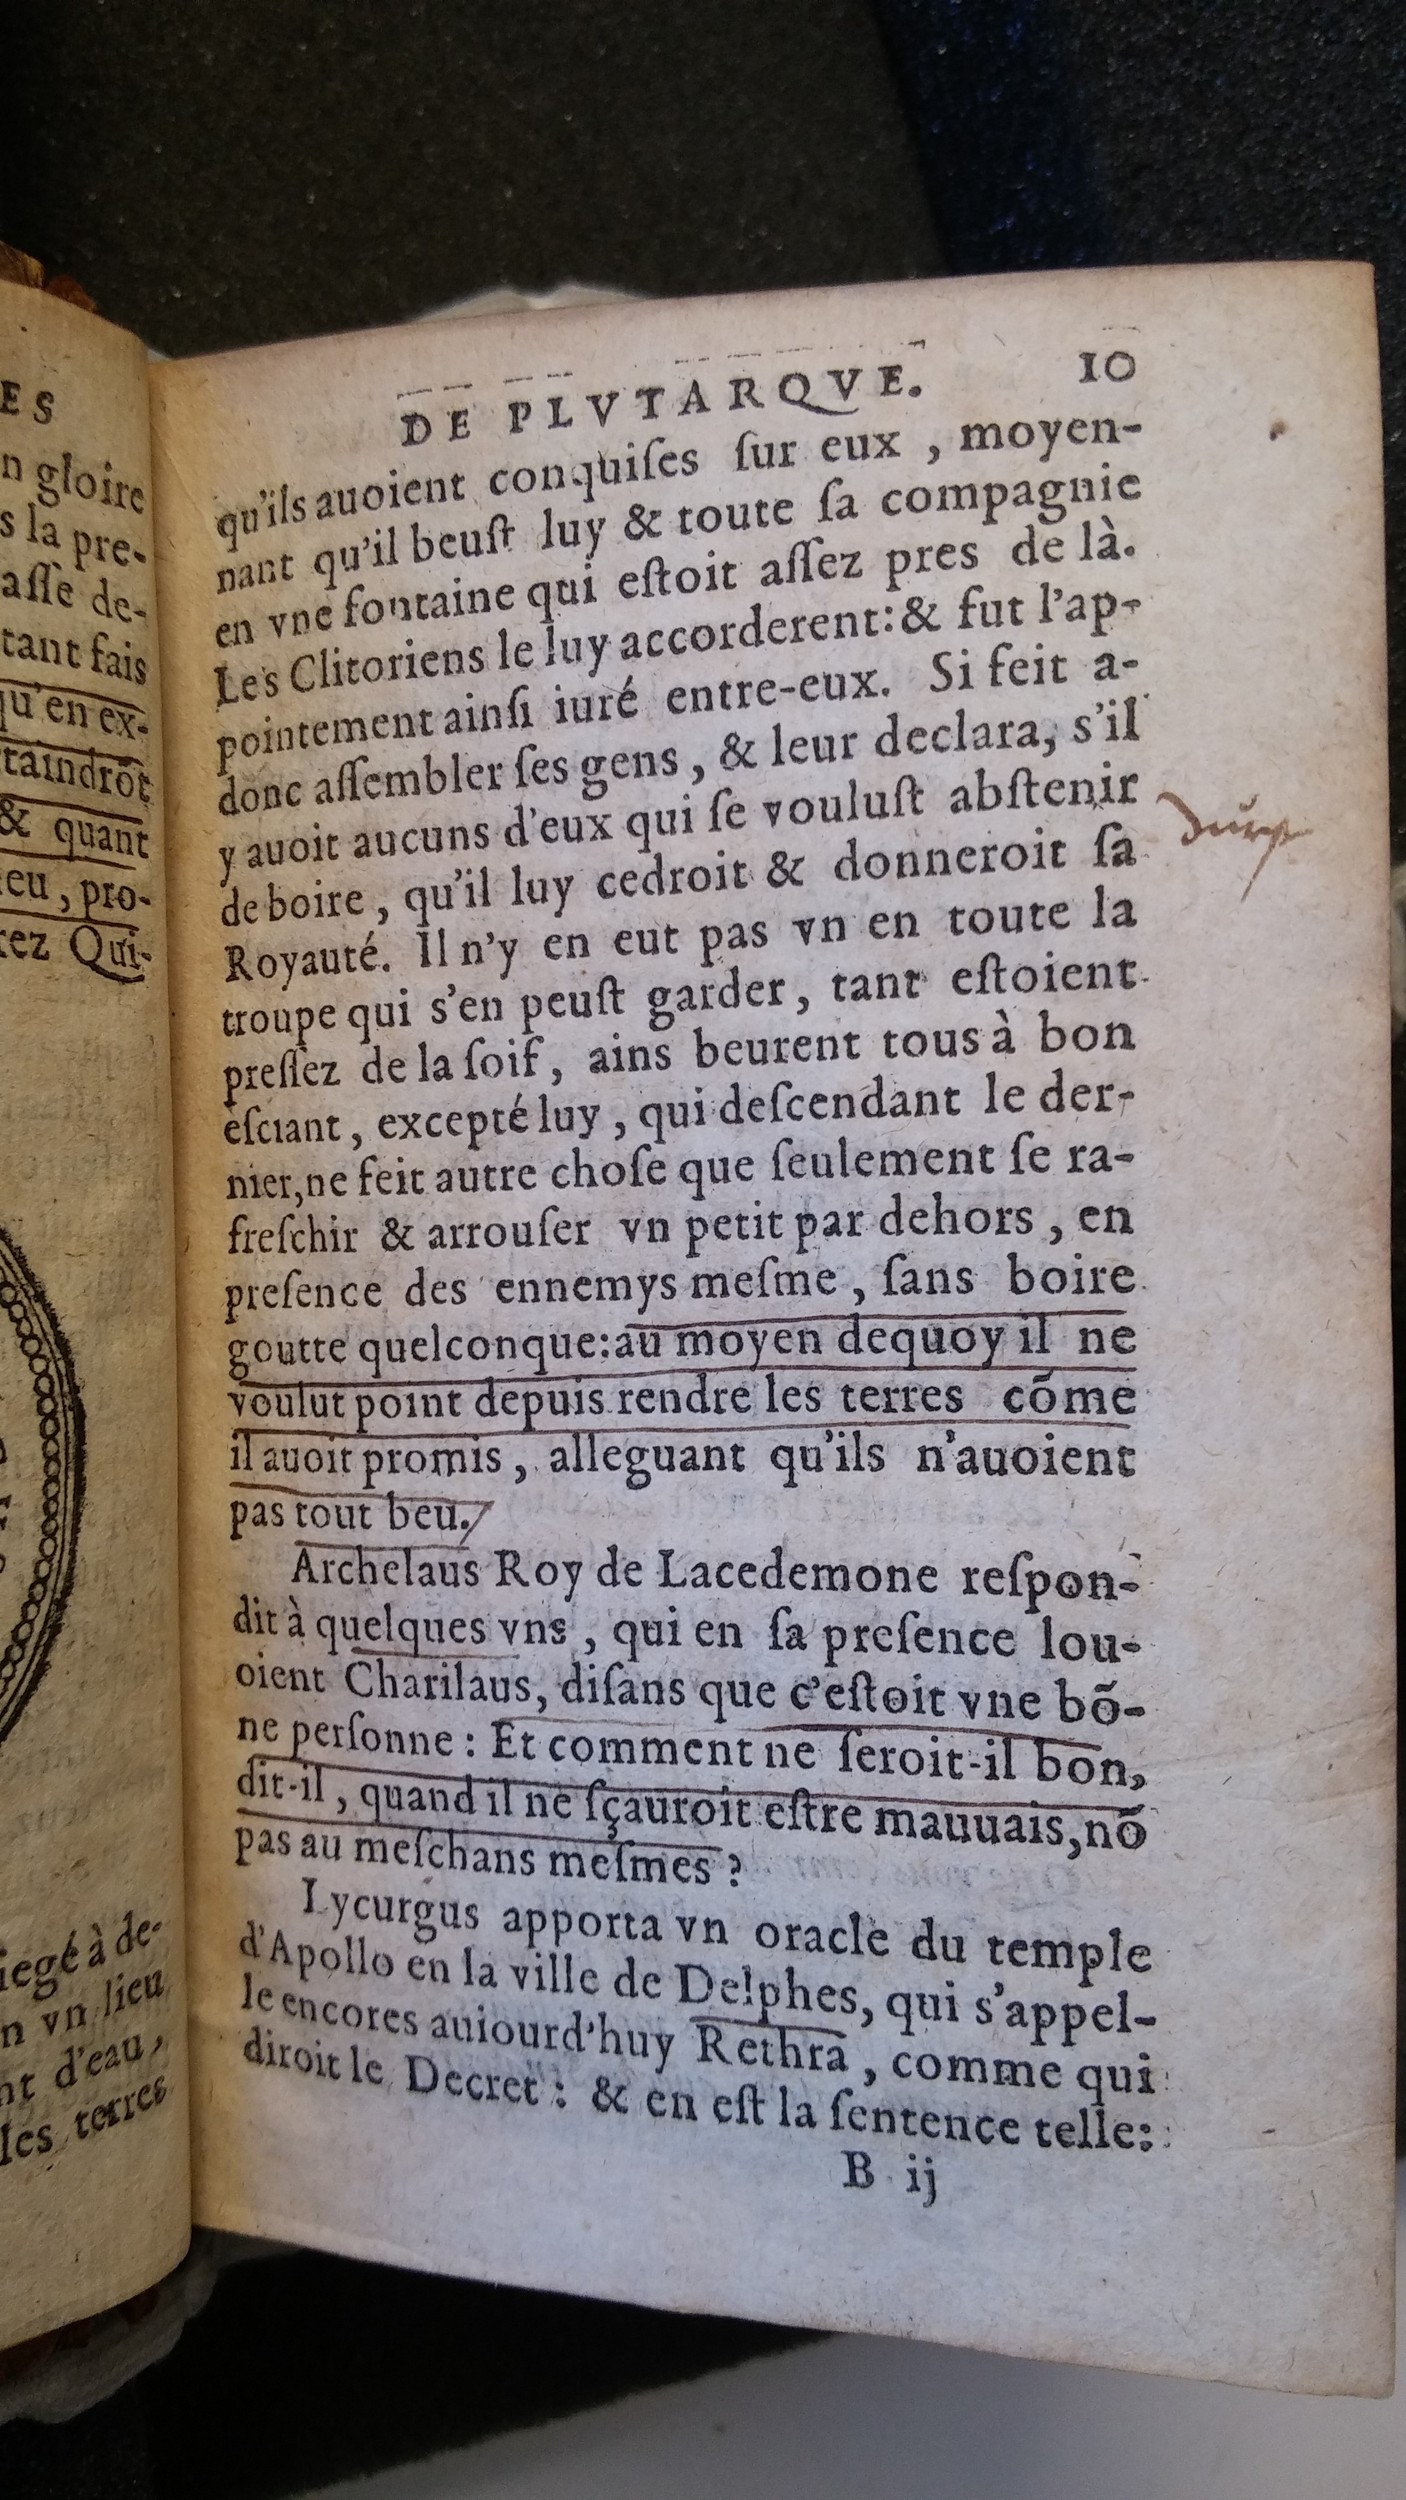 ES
n gloire
s la pre-
asse de-
tant fais
qu'en ex-
taindrõt
& quant
ieu, pro-
rez Qui-
iegé à de-
n vn lieu
nt d'eau,
les terres
DE PLVTARQVE. 10
qu'ils auoient conquiſes ſur eux, moyen-
nant qu'il beuſt luy & toute ſa compagnie
en vne fontaine qui eſtoit aſſez pres de là.
Les Clitoriens le luy accorderent: & fut l'ap-
pointement ainſi iuré entre-eux. Si feit a-
donc aſſembler ſes gens, & leur declara, s'il
y auoit aucuns d'eux qui ſe vouluſt abſtenir
de boire, qu'il luy cedroit & donneroit ſa
Royauté. Il n'y en eut pas vn en toute la
troupe qui s'en peuſt garder, tant eſtoient
preſſez de la ſoif, ains beurent tous à bon
eſciant, excepté luy, qui deſcendant le der-
nier, ne feit autre choſe que ſeulement ſe ra-
freſchir & arrouſer vn petit par dehors, en
preſence des ennemys meſme, ſans boire
goutte quelconque: au moyen dequoy il ne
voulut point depuis rendre les terres cõme
il auoit promis, alleguant qu'ils n'auoient
pas tout beu.
Archelaus Roy de Lacedemone reſpon-
dit à quelques vns, qui en ſa preſence lou-
oient Charilaus, diſans que c'eſtoit vne bõ-
ne perſonne: Et comment ne ſeroit-il bon,
dit-il, quand il ne ſçauroit eſtre mauuais, nõ
pas au meſchans meſmes?
Lycurgus apporta vn oracle du temple
d'Apollo en la ville de Delphes, qui s'appel-
le encores auiourd'huy Rethra, comme qui
diroit le Decret: & en eſt la ſentence telle:
B ij